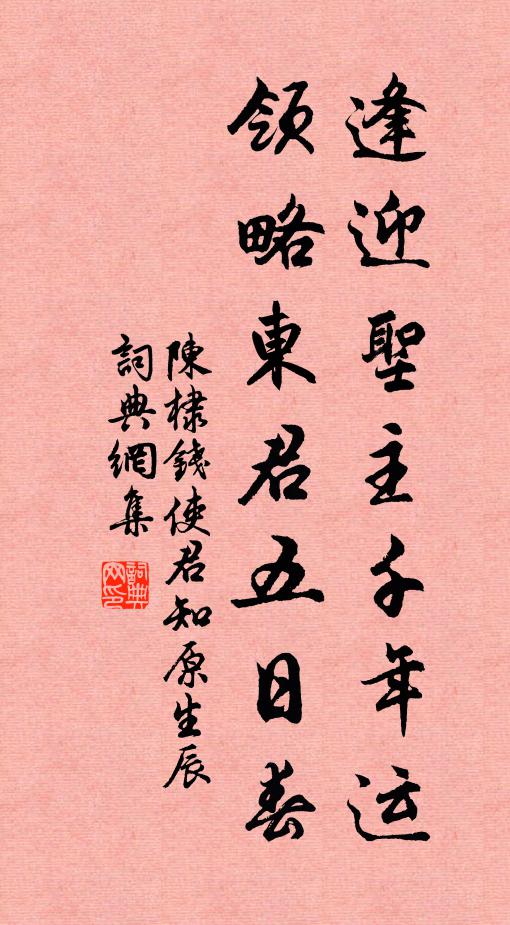 逢迎聖主千年运
領略東君五日春
陳棣錢使君知原生辰
詞典網集
詞典網印